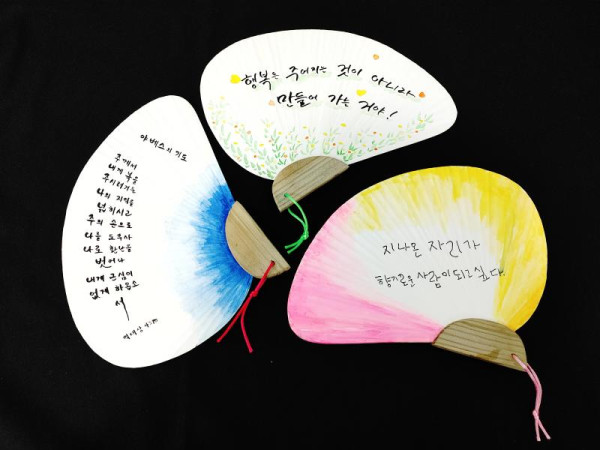 행복은 주어지는 것이 아니라
만들어 가는 거야!
야베스의 기도
주께서
내게 복을
주시려거든
나의 지경을
넓히시고
주의 손으로
나를 도우사
나로 환난을
벗어나
내게 근심이
없게 하옵소
서
역대상 4:10
지나온 자리가
향기로운 사람이 되고 싶다.